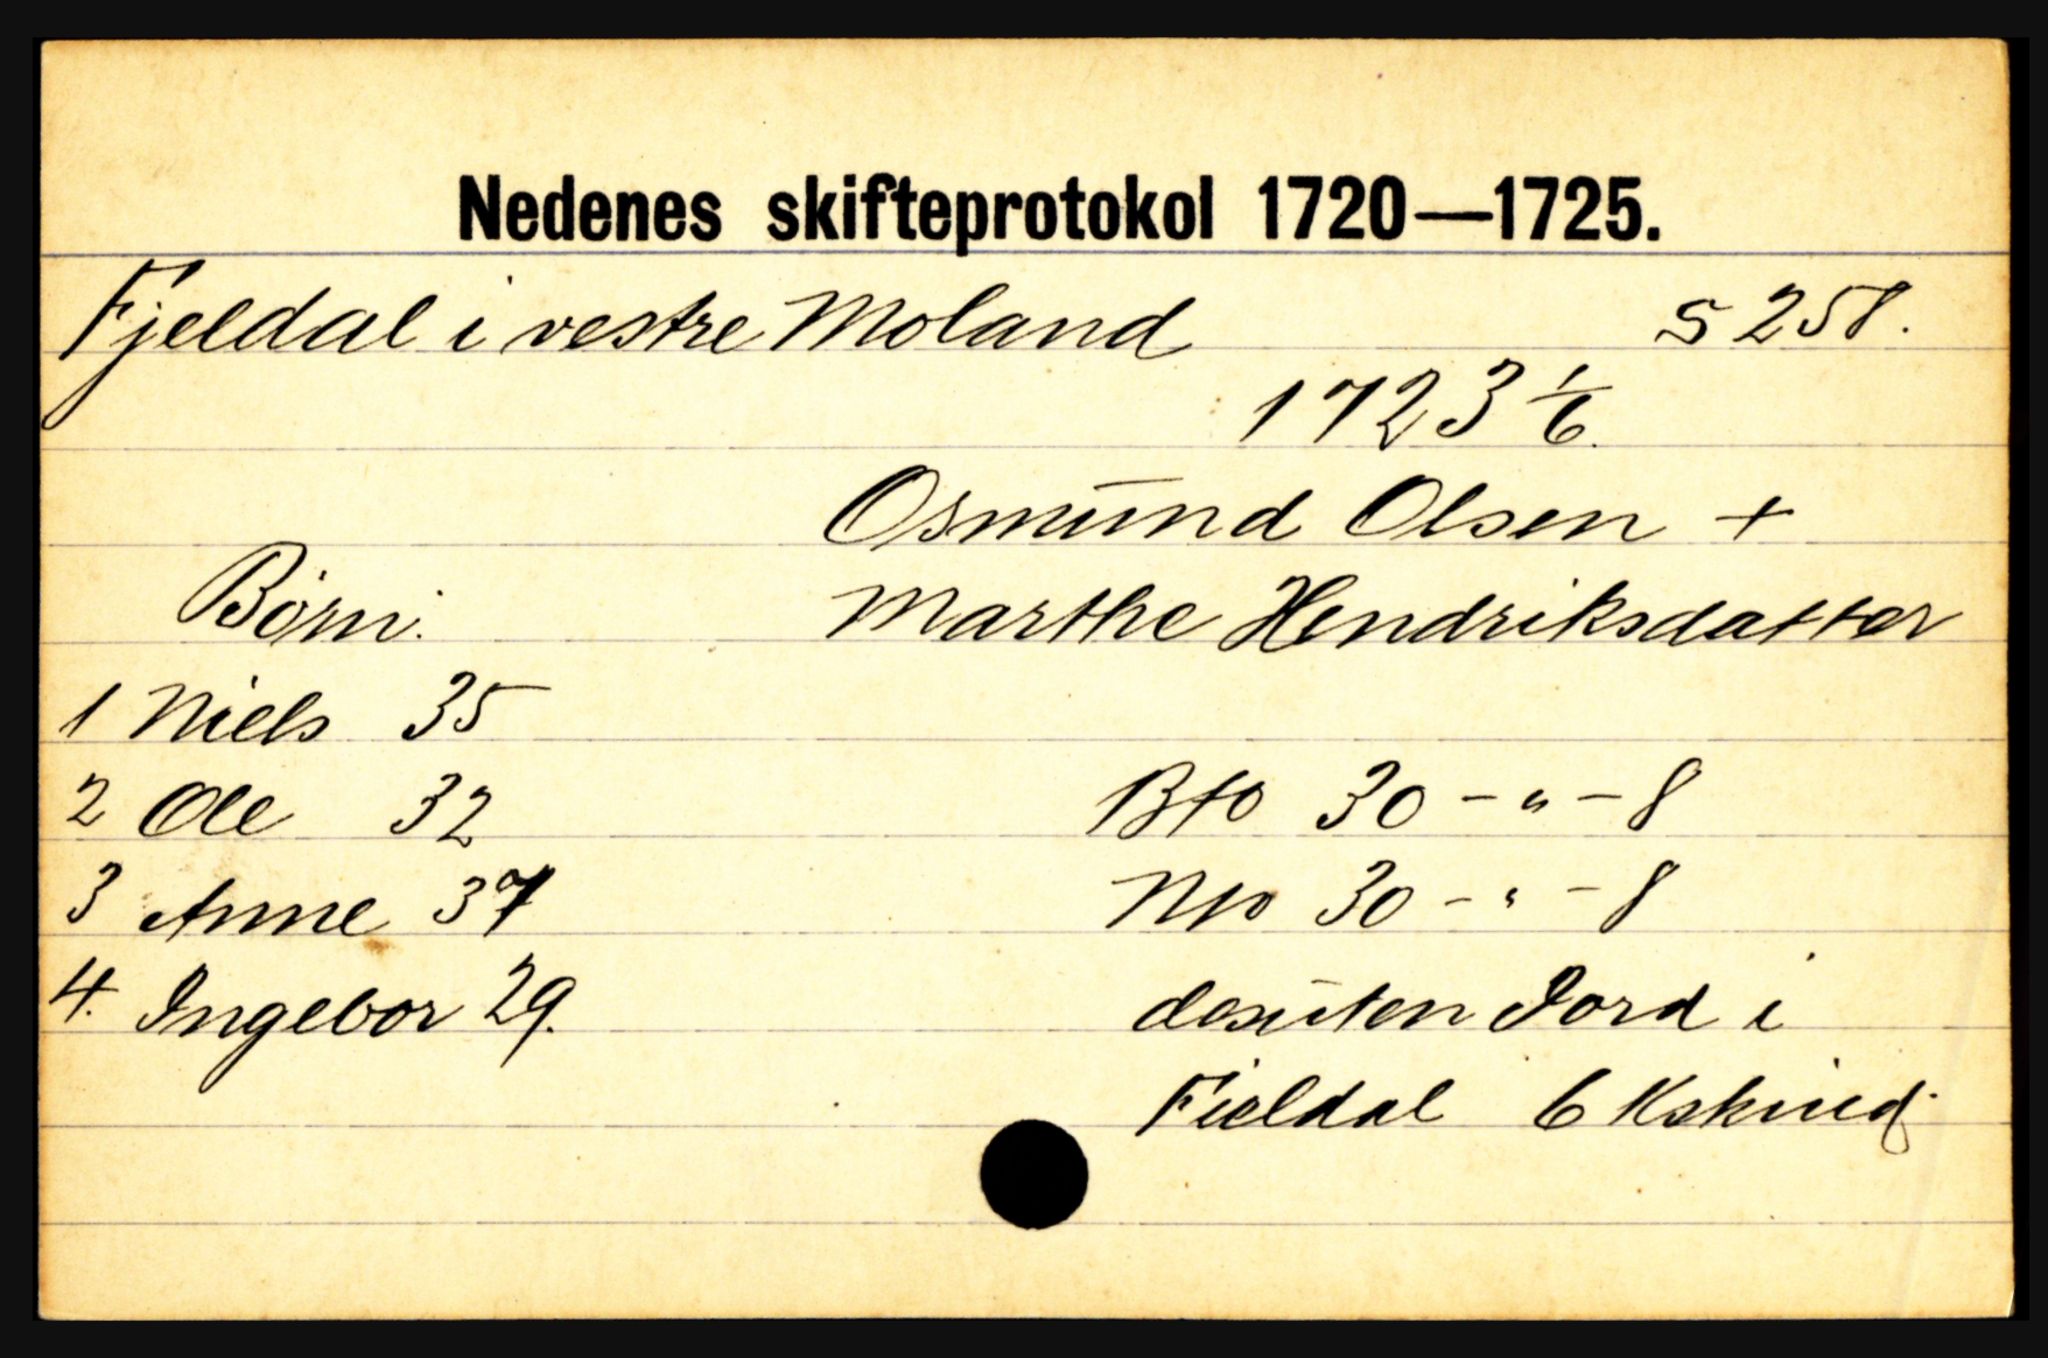 Nedenes skifteprotokol 1720—1725.
Fjeldal i vestre Moland S 258.
1723 1/6.
Osmund Olsen +
Børn: Marthe Hendriksdatter
1 Niels 35
2 Ole 32 Bfo 30 - " - 8
3 Anne 37 Nfo 30 - " - 8
4. Ingebor 29. desuten Jord i
Fieldal 6 Kskind.